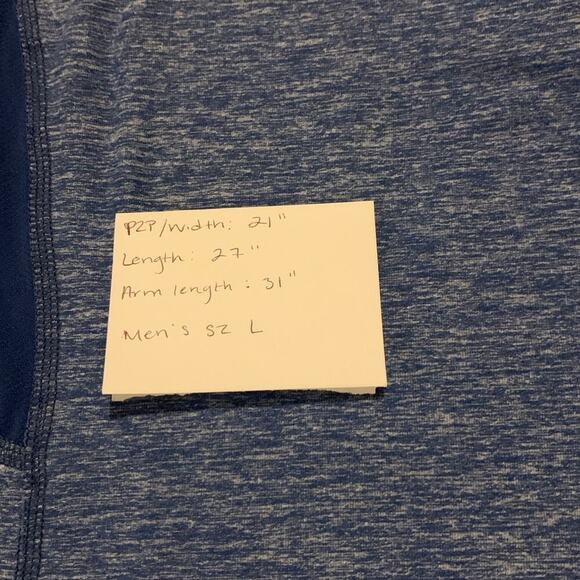 P2P/Width: 21"
Length: 27"
Arm length: 31"
Men's sz L